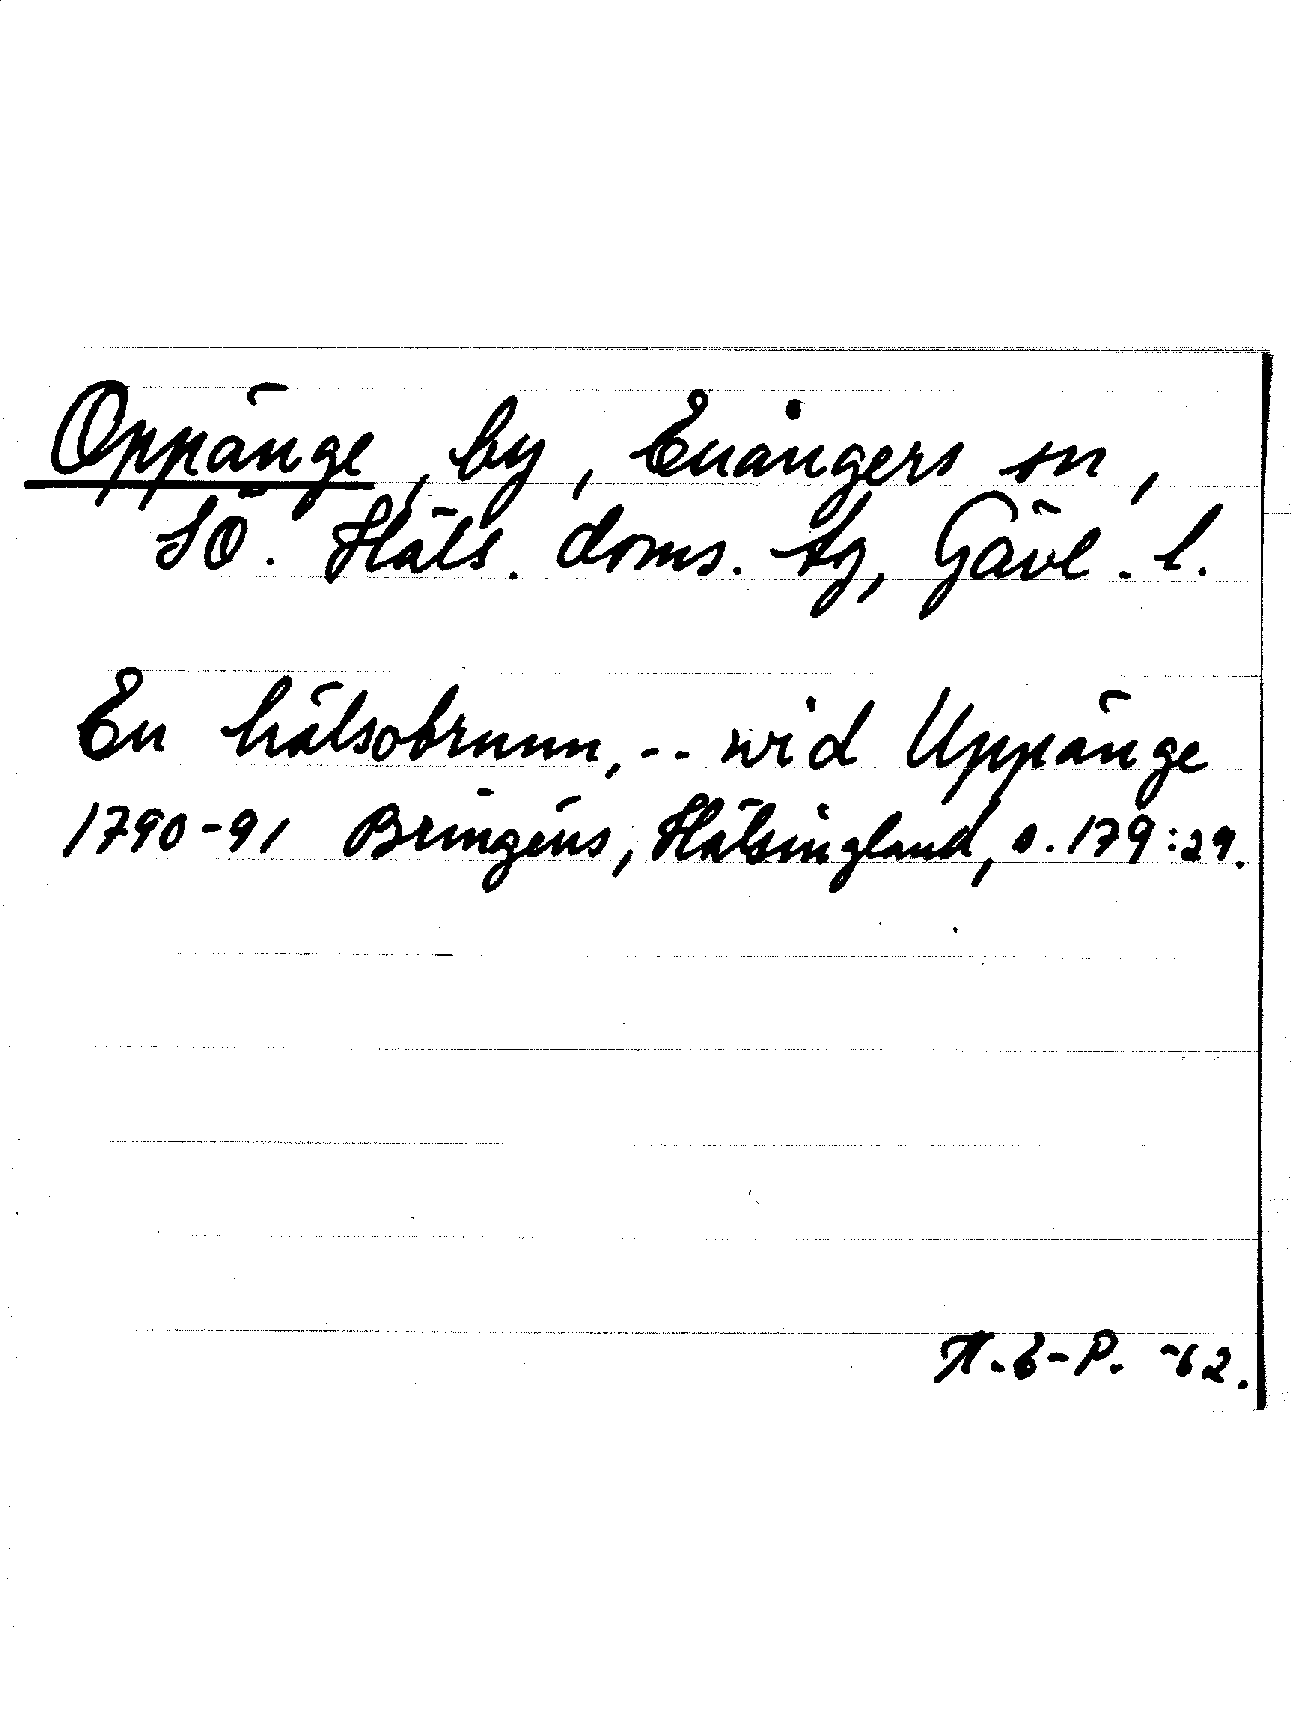 Oppänge, by, Enångers sn,
SÖ. Häls. doms. tg, Gävl. l.
En hälsobrunn, -- wid Uppänge
1790-91 Bringéus, Hälsingland, s. 179:29.
-62.